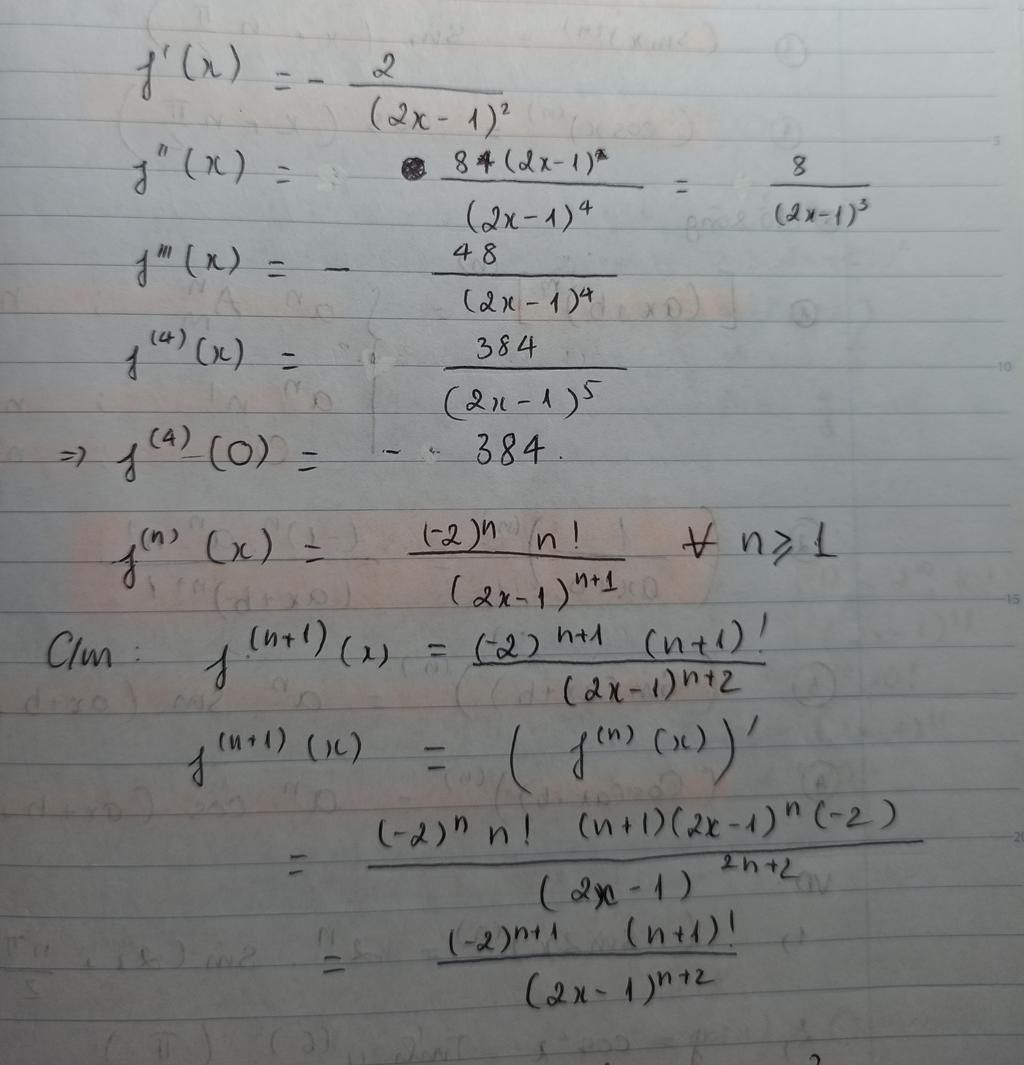 f'(x) = - 2/(2x-1)²
f''(x) = 8(2x-1)/(2x-1)⁴ = 8/(2x-1)³
f'''(x) = - 48/(2x-1)⁴
f⁽⁴⁾(x) = 384/(2x-1)⁵
=> f⁽⁴⁾(0) = - 384.
f⁽ⁿ⁾(x) = (-2)ⁿ n!/(2x-1)ⁿ⁺¹ ∀ n ⩾ 1
C/m : f⁽ⁿ⁺¹⁾(x) = (-2)ⁿ⁺¹ (n+1)!/(2x-1)ⁿ⁺²
f⁽ⁿ⁺¹⁾(x) = (f⁽ⁿ⁾(x))'
= (-2)ⁿ n! (n+1)(2x-1)ⁿ(-2)/(2x-1)²ⁿ⁺²
= (-2)ⁿ⁺¹ (n+1)!/(2x-1)ⁿ⁺²